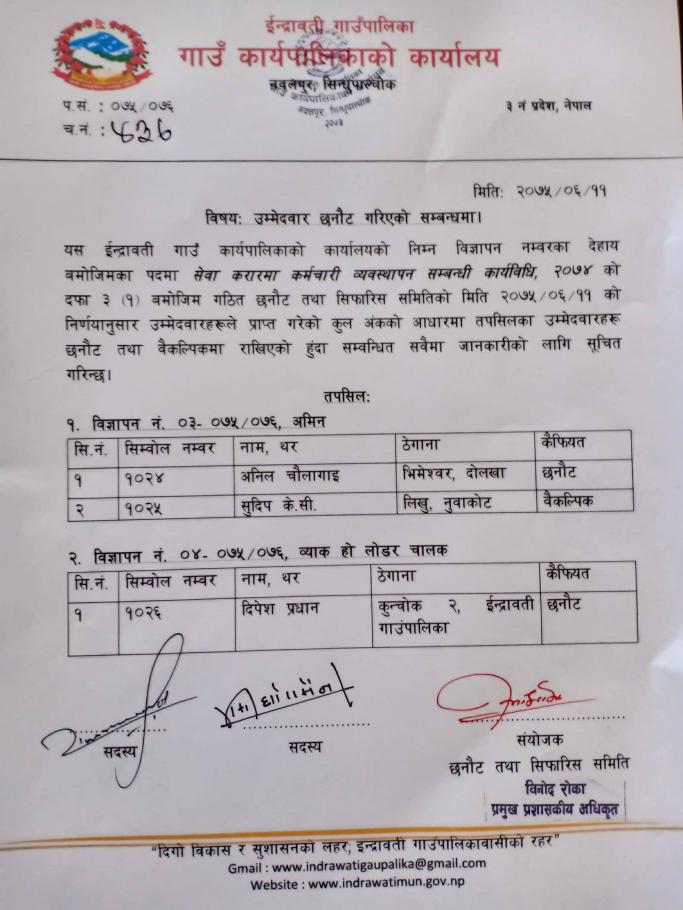 ईन्द्रावती गाउँपालिका
गाउँ कार्यपालिकाको कार्यालय
नवलपुर, सिन्धुपाल्चोक
प.सं. : ०७५/०७६
३ नं प्रदेश, नेपाल
च.नं. : ४३६
मिति: २०७५/०६/११
विषय: उम्मेदवार छनौट गरिएको सम्बन्धमा।
यस ईन्द्रावती गाउँ कार्यपालिकाको कार्यालयको निम्न विज्ञापन नम्वरका देहाय
बमोजिमका पदमा सेवा करारमा कर्मचारी व्यवस्थापन सम्बन्धी कार्यविधि, २०७४ को
दफा ३ (१) बमोजिम गठित छनौट तथा सिफारिस समितिको मिति २०७५/०६/११ को
निर्णयानुसार उम्मेदवारहरूले प्राप्त गरेको कुल अंकको आधारमा तपसिलका उम्मेदवारहरू
छनौट तथा वैकल्पिकमा राखिएको हुंदा सम्वन्धित सवैमा जानकारीको लागि सूचित
गरिन्छ।
तपसिल:
१. विज्ञापन नं. ०३- ०७५/०७६, अमिन
सि.नं. सिम्वोल नम्वर नाम, थर ठेगाना कैफियत
१ १०२४ अनिल चौलागाइ भिमेश्वर, दोलखा छनौट
२ १०२५ सुदिप के.सी. लिखु, नुवाकोट वैकल्पिक
२. विज्ञापन नं. ०४- ०७५/०७६, व्याक हो लोडर चालक
सि.नं. सिम्वोल नम्वर नाम, थर ठेगाना कैफियत
१ १०२६ दिपेश प्रधान कुन्चोक २, ईन्द्रावती छनौट
गाउंपालिका
सदस्य
सदस्य
संयोजक
छनौट तथा सिफारिस समिति
विनोद रोका
प्रमुख प्रशासकीय अधिकृत
"दिगो विकास र सुशासनको लहर; इन्द्रावती गाउँपालिकावासीको रहर"
Gmail : www.indrawatigaupalika@gmail.com
Website : www.indrawatimun.gov.np